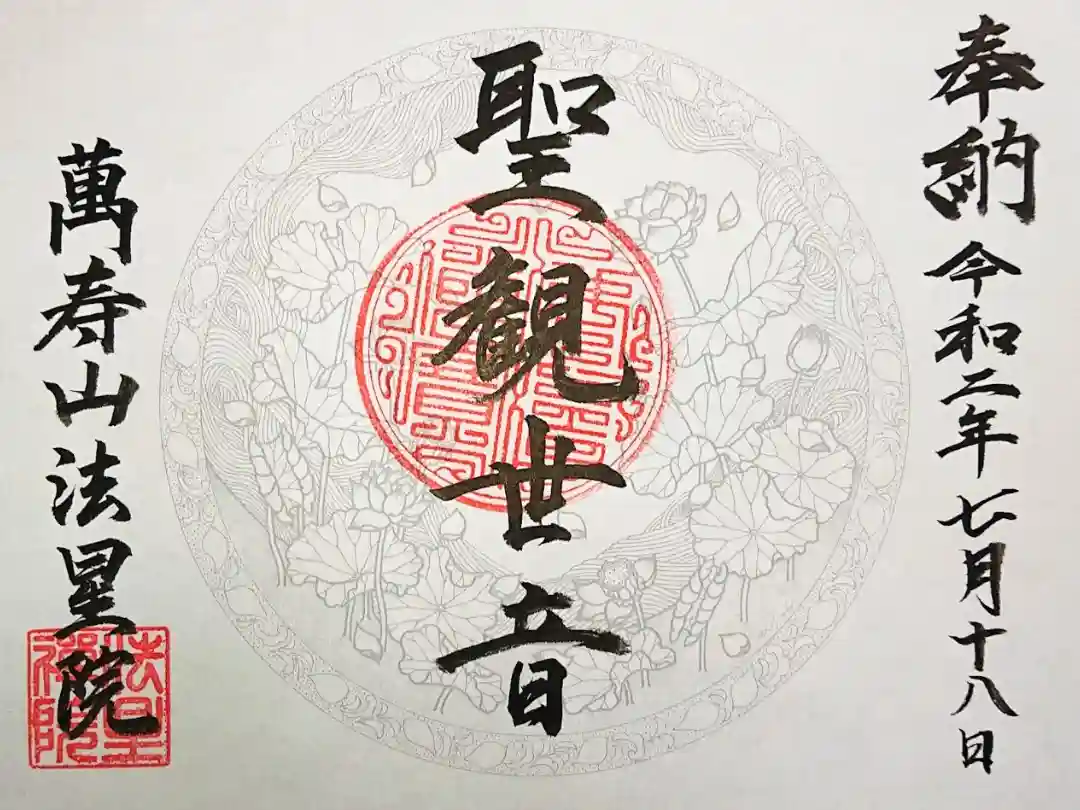 奉納 令和二年七月十八日
聖観世音
萬寿山法星院
法星禅院